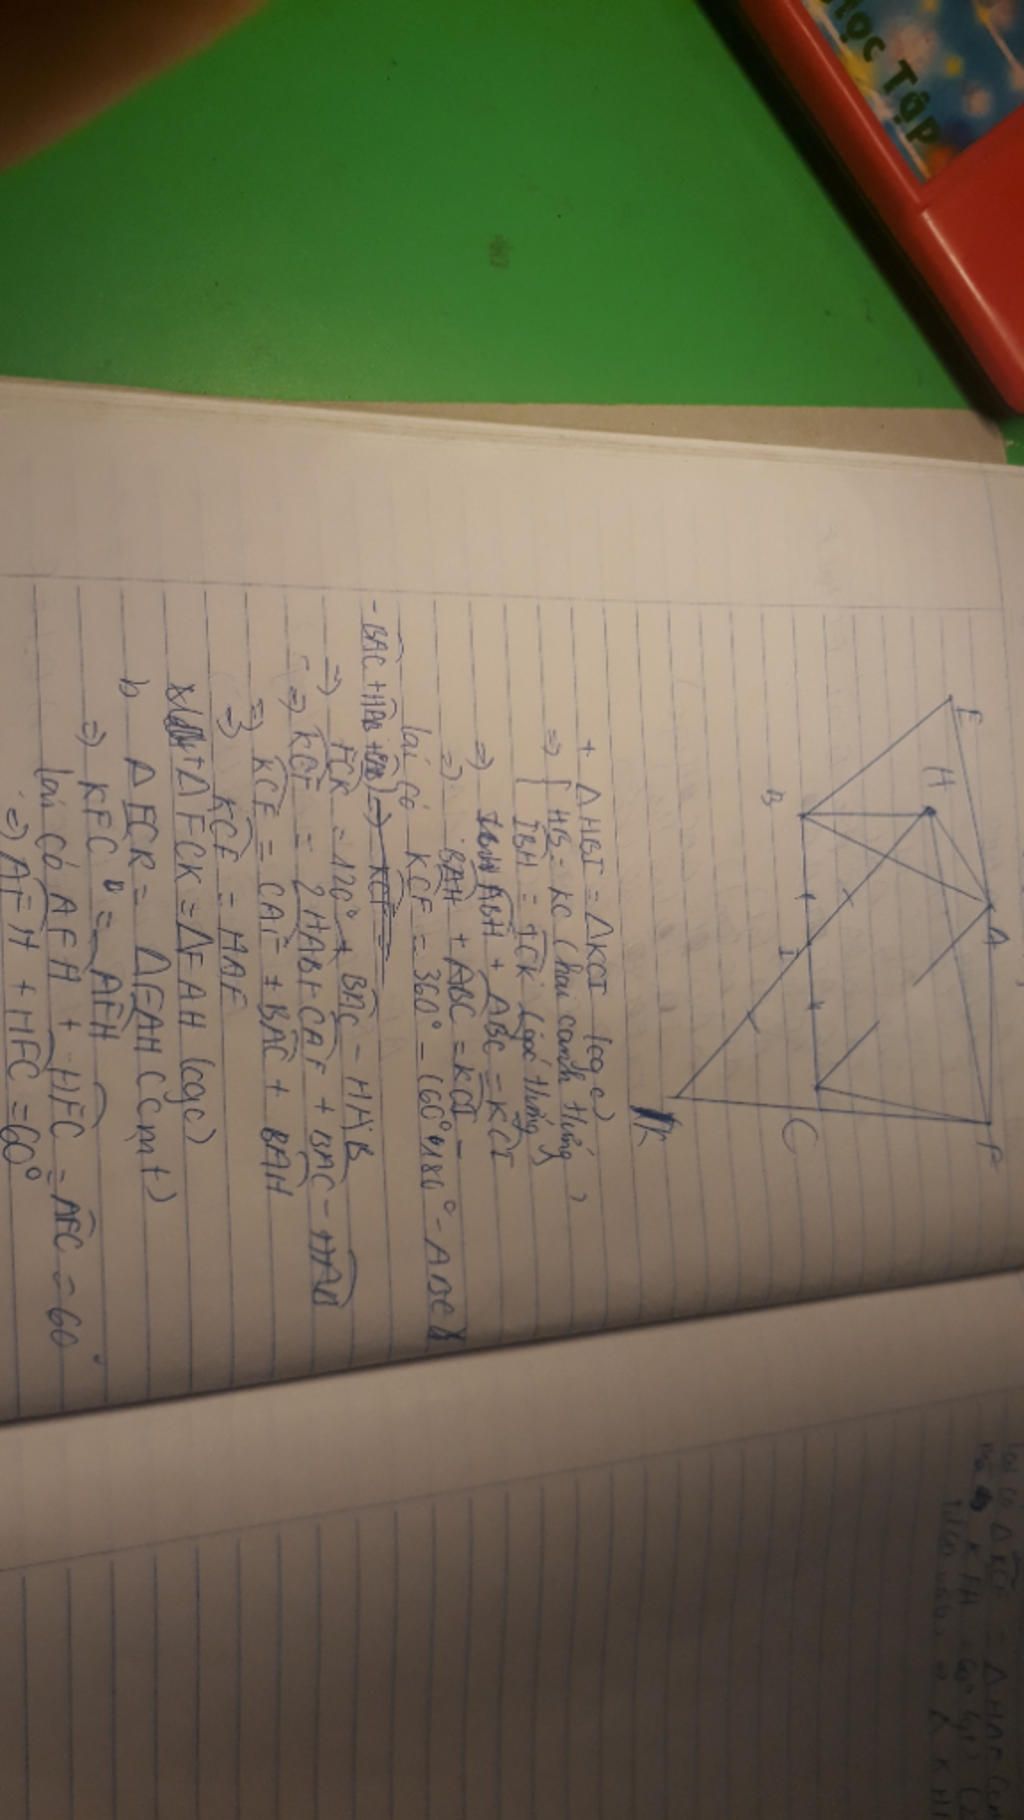 Học Tập
E
H
A
F
B
I
C
K
+ ΔHBI = ΔKCI (cgc)
=> { HB = KC (hai cạnh tướng
IBH = ICK (góc tướng)
=> ABH + ABC = KCI
=> BAH + ABC = KCI -
lại có KCF = 360° - (60° + 180° - ABC
- BAC + HAB + => KCF =
=> FCK = 120° + BAC - HAB
=> KCF = 2HAB + CAF + BAC - HAB
=> KCF = CAF + BAC + BAH
=> KCF = HAF
+ ΔFCK = ΔFAH (cgc)
b ΔFCK = ΔFAH (cmt)
=> KFC = AFH
lại có AFH + HFC = AFC = 60°
=> AFH + HFC = 60°
lại có ΔKCF = ΔHAF